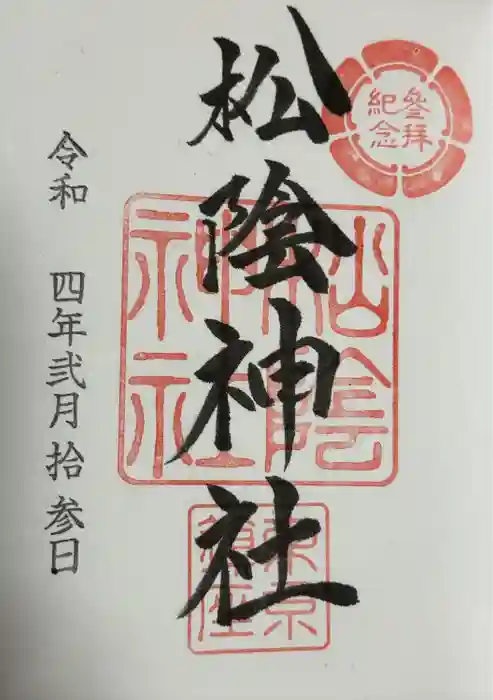 參拝
紀念
松陰神社
松陰
神社
東京
鎮座
令和 四年弐月拾参日